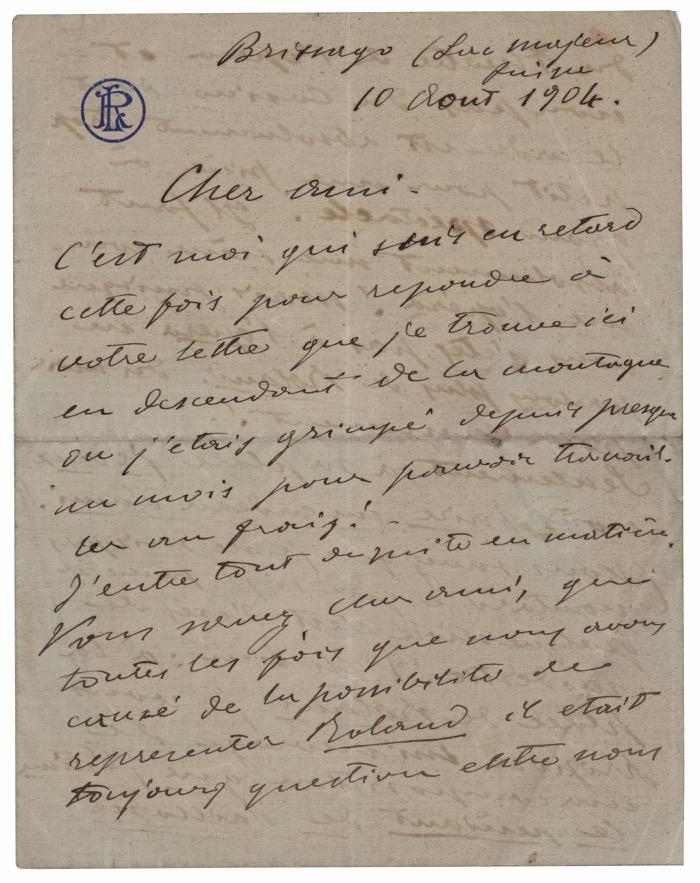 Brissago (Lac majeur)
Suisse
10 Aout 1904.
RL
Cher ami -
C'est moi qui suis en retard
cette fois pour repondre à
votre lettre que je trouve ici
en descendant de la montagne
ou j'etais grimpé depuis presque
un mois pour pouvoir travail-
ler au frais! -
J'entre tout de suite en matière.
Vous savez cher ami, que
toutes les fois que nous avons
causé de la possibilité de
representer Roland il etait
toujours question entre nous